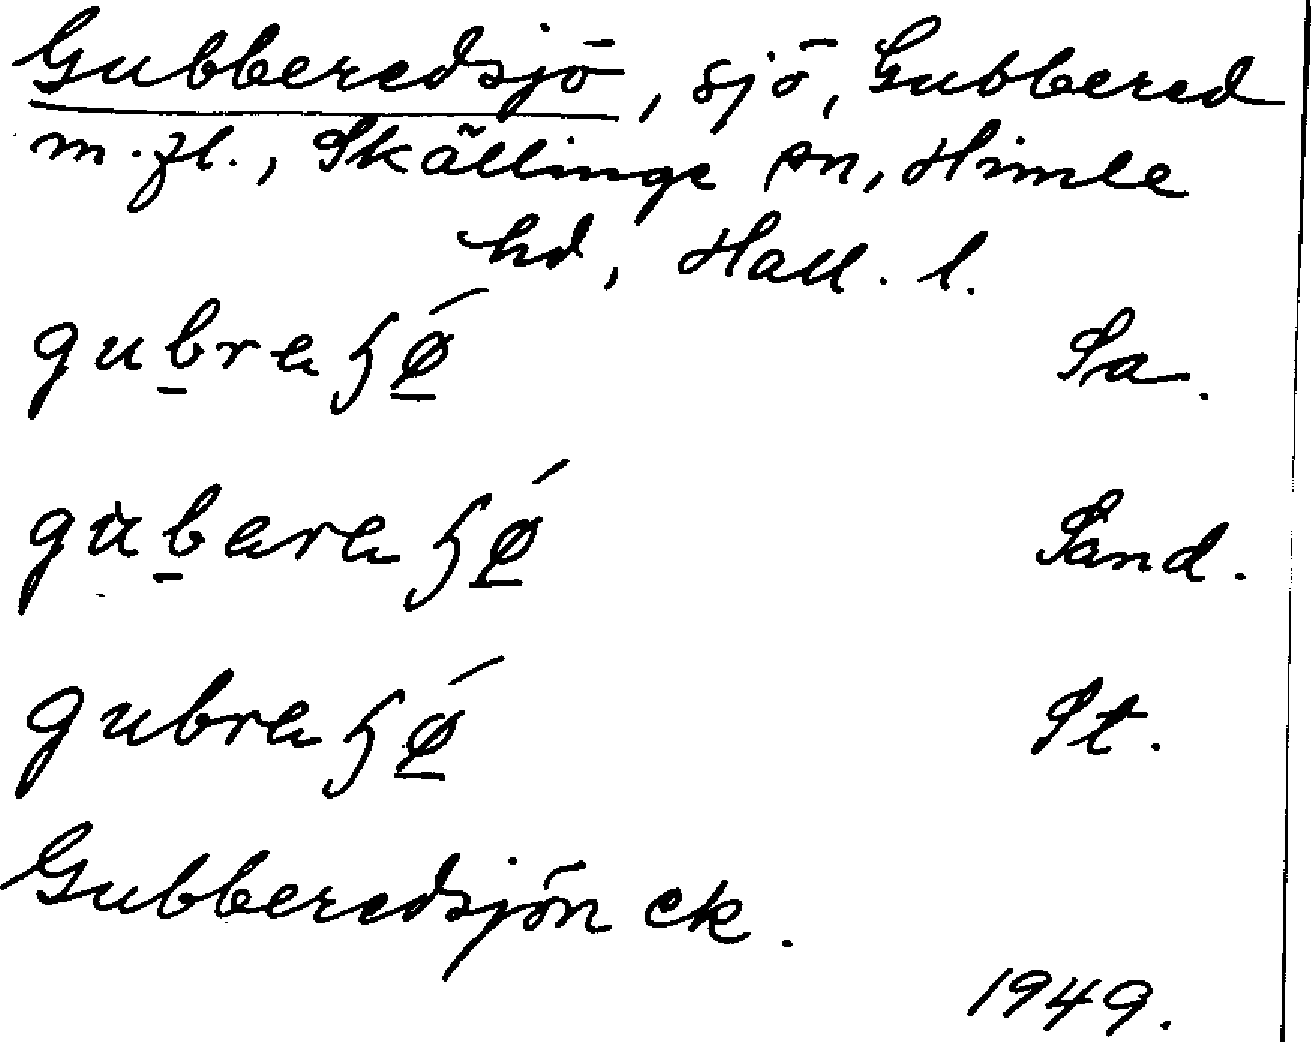 Gubberedsjö, sjö, Gubbered
m.fl., Skällinge sn, Himle
hd, Hall. l.
gub̲raɧǿ̲ Sa.
gub̲araɧǿ̲ Sand.
gubraɧǿ̲ St.
Gubberedsjön ek.
1949.